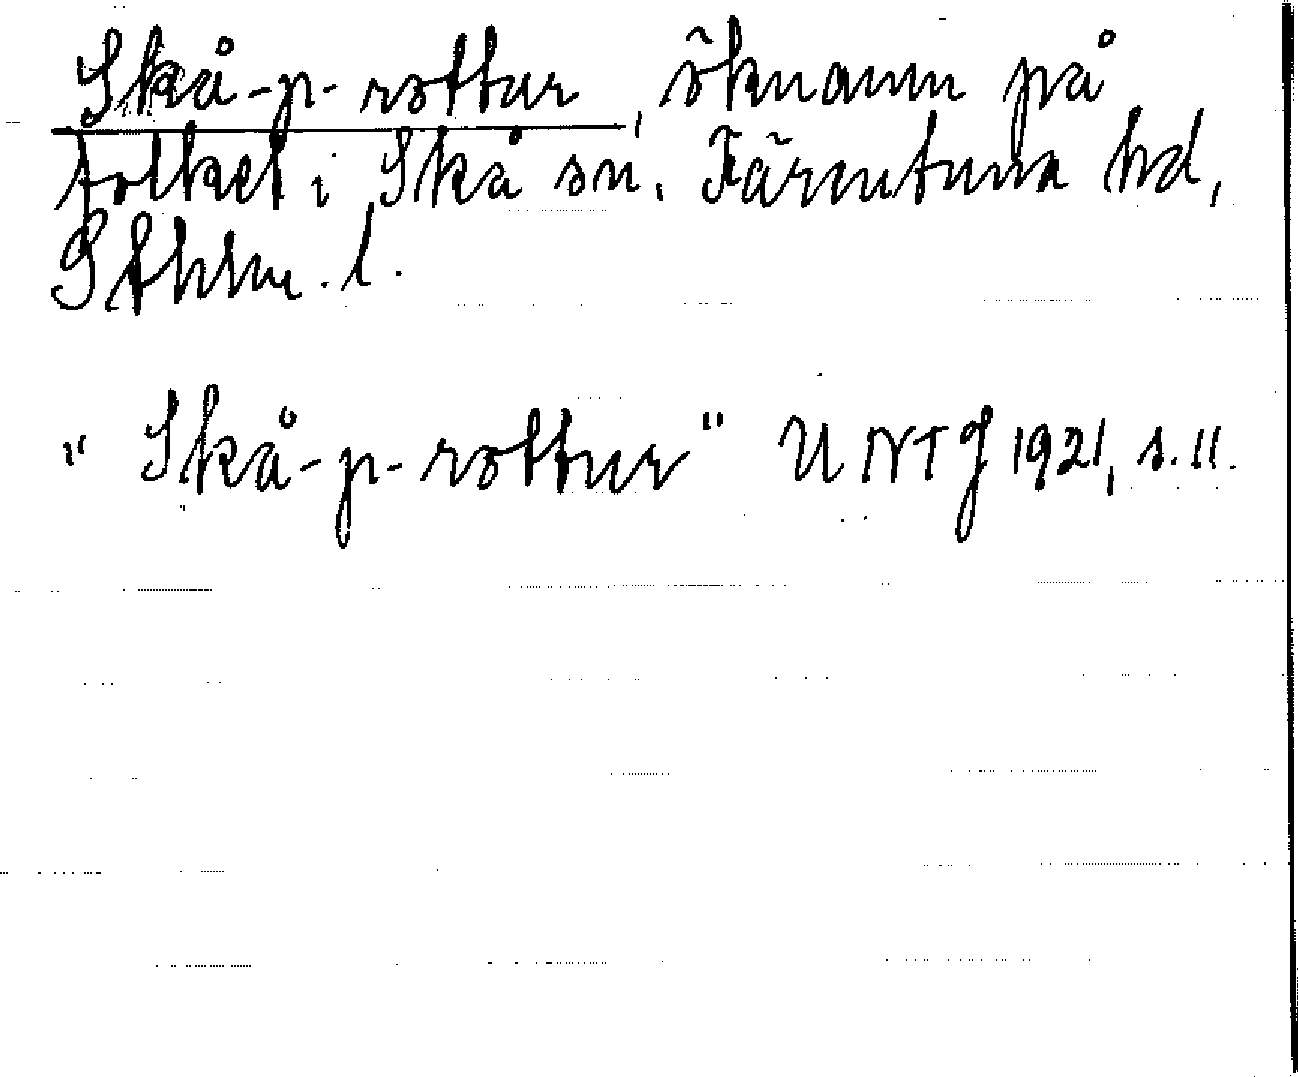 Skå-p-rottur, öknamn på
folket i Skå sn. Färentuna hd,
Sthlm. l.
"Skå-p-rottur" UNTG 1921, s. 11.